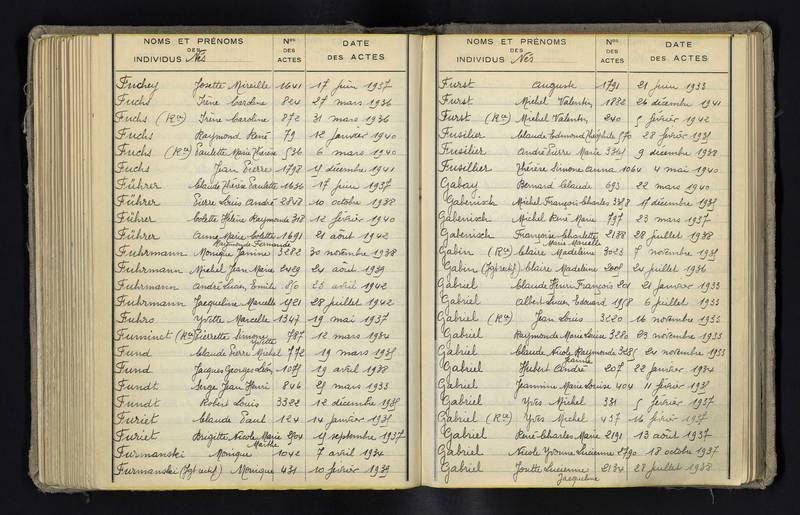 NOMS ET PRÉNOMS
DES
INDIVIDUS Nés
Nos
DES
ACTES
DATE
DES ACTES
Fuchey Josette Mireille 1641 17 juin 1937
Fuchs Irène Caroline 824 27 mars 1936
Fuchs (Rce) Irène Caroline 872 31 mars 1936
Fuchs Raymond René 79 12 janvier 1940
Fuchs (Rce) Paulette Marie Thérèse 536 6 mars 1940
Fuchs Jean Pierre 1798 décembre 1941
Führer Claude Thérèse Paulette 1636 17 juin 1937
Führer Pierre Louis André 2848 10 octobre 1938
Führer Colette Hélène Raymonde 318 12 février 1940
Führer Anne Marie Colette 1691 21 août 1942
Raymonde Fernande
Fuhrmann Monique Janine 3282 30 novembre 1938
Fuhrmann Michel Jean Marie 2429 24 août 1939
Fuhrmann André Lucien Emile 23 avril 1942
Fuhrmann Jacqueline Marcelle 28 juillet 1942
Fuhro Yvette Marcelle 1347 19 mai 1937
Fuminet (Rce) Pierrette Simone 787 12 mars 1934
Yvette
Fund Claude Pierre Michel 772 19 mars
Fund Jacques Georges Léon 19 avril 1938
Fundt Serge Jean Henri 846 mars 1933
Fundt Robert Louis 3322 12 décembre
Furiet Claude Paul 124 14 janvier
Furiet Brigitte Nicole Marie septembre 1937
Marthe
Furmanski Monique 1042 7 avril 1934
Furmanski Monique 431 10 février 1939
NOMS ET PRÉNOMS
DES
INDIVIDUS Nés
Nos
DES
ACTES
DATE
DES ACTES
Furst Auguste 1791 21 juin 1933
Furst Michel Valentin 1882 26 décembre 1941
Furst (Rce) Michel Valentin 240 5 février 1942
Fusilier Claude Edmond Théophile 28 février
Fusilier André Pierre Marie 9 décembre 1938
Fusillier Thérèse Simone Anna 1064 4 mai 1940
Gabay Bernard Claude 693 22 mars 1940
Gabenisch Michel François Charles décembre
Gabenisch Michel René Marie 797 23 mars 1937
Gabenisch Françoise Charlotte 2188 28 juillet 1938
Marie Marcelle
Gabin (Rce) Claire Madeleine 3023 7 novembre
Gabin Claire Madeleine 24 juillet 1936
Gabriel Claude Henri François 21 janvier 1933
Gabriel Albert Lucien Edouard 6 juillet 1933
Gabriel (Rce) Jean Louis 3220 16 novembre 1933
Gabriel Raymonde Marie Louise 3280 23 novembre 1933
Gabriel Claude Nicole Raymonde 24 novembre 1933
Gabriel Hubert André 207 22 janvier 1934
Gabriel Jeannine Marie Louise 404 11 février
Gabriel Yves Michel 331 5 février 1937
Gabriel (Rce) Yves Michel 437 16 février 1937
Gabriel René Charles Marie 2191 13 août 1937
Gabriel Nicole Yvonne Lucienne 2790 18 octobre 1937
Gabriel Josette Lucienne 2184 28 juillet 1938
Jacqueline